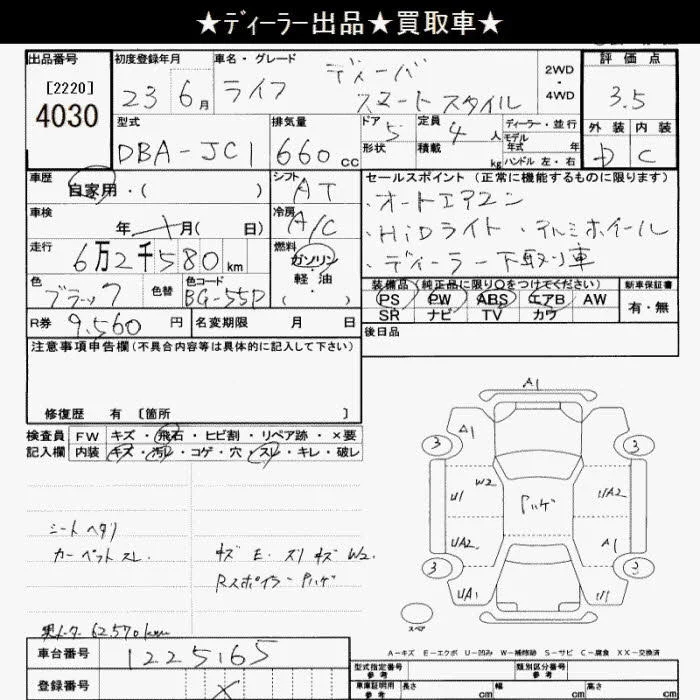 ★ディーラー出品★買取車★
出品番号
[2220]
4030
初度登録年月
23 6月
車名・グレード
ライフ ディーバ
スマートスタイル
2WD
・
4WD
評価点
3.5
外装 内装
D C
型式
DBA-JC1
排気量
660 cc
ドア 5
形状
定員 4 人
積載 kg
ディーラー・並行
モデル
年式 年
ハンドル 左・右
車歴
自家用・( )
シフト
AT
車検
年 月( 日)
冷房
A/C
走行
6万2千580km
燃料
ガソリン
軽油
( ・ )
色
ブラック
色替
色コード
BG-55P
R券 9,560 円
名変期限 月 日
セールスポイント (正常に機能するものに限ります)
・オートエアコン
・HiDライト ・アルミホイール
・ディーラー下取り車
装備品 (純正品に限り○をつけてください)
PS PW ABS エアB AW
SR ナビ TV カワ
新車保証書
有・無
後日品
注意事項申告欄(不具合内容等は具体的に記入して下さい)
修復歴 有 [箇所 ]
検査員 FW キズ・飛石・ヒビ割・リペア跡・×要
記入欄 内装 キズ・汚レ・コゲ・穴・スレ・キレ・破レ
シートヘタリ
カーペットスレ.
キズ E. スリキズ W2.
Rスポイラー Pハゲ
実メーター 62,570km
A1
3
A1
3
U1
W2
Pハゲ
UA2
UA2
A1
3
3
UA1
U1
スペア
A-キズ E-エクボ U-凹み W-補修跡 S-サビ C-腐食 XX-交換済
車台番号 1225165
登録番号
型式指定番号
参考
類別区分番号
参考
車庫証明用
参考
長さ cm 幅 cm 高さ cm